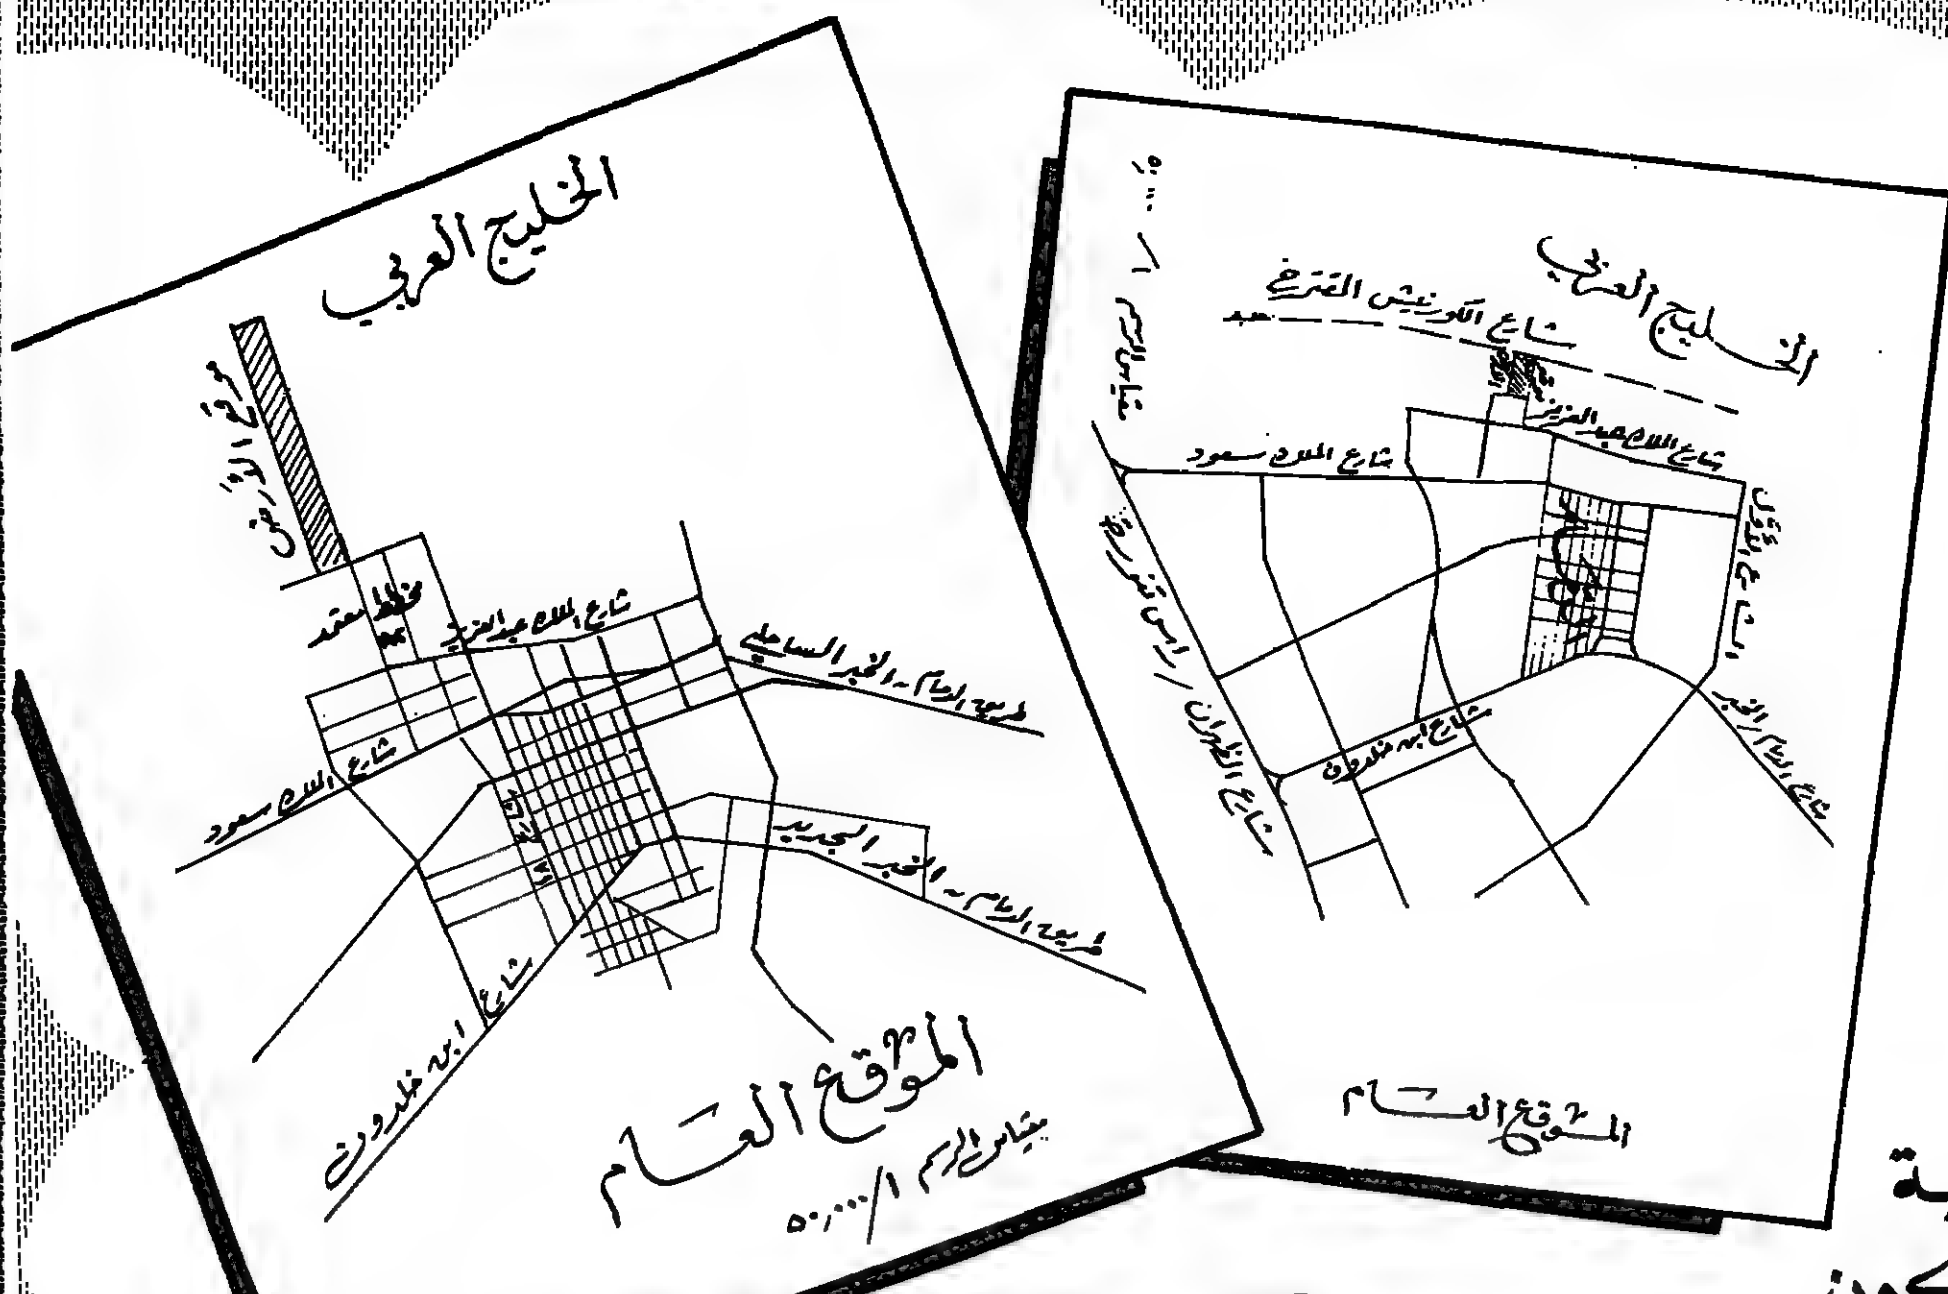 الخليج العربي
موقع الأرض
مخطط معتمد
شارع الملك عبد العزيز
طريق الدمام - الخبر الساحلي
شارع الملك سعود
طريق الدمام - الخبر الجديد
شارع ابن خلدون
الموقع العام
مقياس الرسم ١/٥٠,٠٠٠
الخليج العربي
شارع الكورنيش المقترح
مقياس الرسم ١/
شارع الملك عبد العزيز
شارع الملك سعود
الشارع الأول
شارع الظهران / راس تنورة
شارع ابن خلدون
شارع الدمام الخبر
الموقع العام